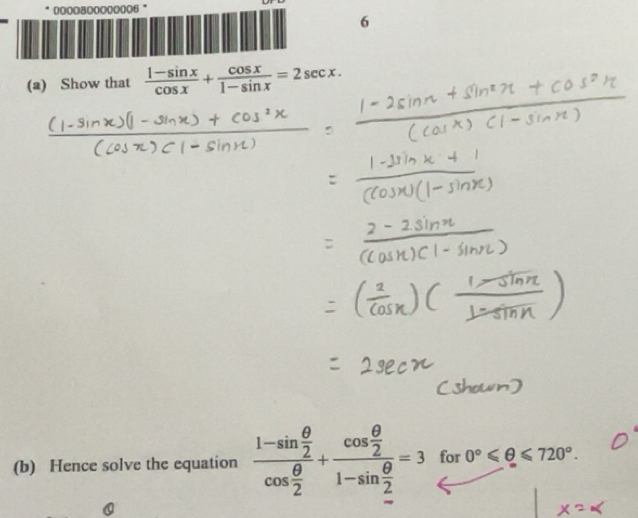 * 0000800000006 *
6
(a) Show that (1−sin x)/(cos x) + (cos x)/(1−sin x) = 2 sec x.
((1-sin x)(1 - sin x) + cos²x)/((cos x)(1 - sin x)) = (1 - 2sin x + sin²x + cos²x)/((cos x)(1 - sin x))
= (1 - 2sin x + 1)/((cos x)(1 - sin x))
= (2 - 2sin x)/((cos x)(1 - sin x))
= (2/cos x)((1 - sin x)/(1 - sin x))
= 2sec x
(shown)
(b) Hence solve the equation (1−sin θ/2)/(cos θ/2) + (cos θ/2)/(1−sin θ/2) = 3 for 0° ⩽ θ ⩽ 720°.
0°
θ
x = α